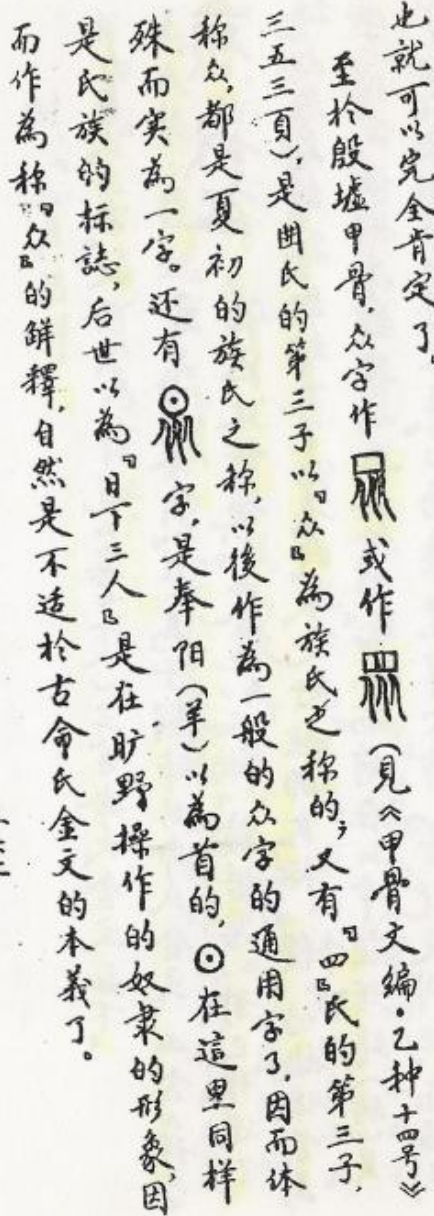 也就可以完全肯定了。
至於殷墟甲骨，众字作 或作 （見《甲骨文編·乙种十四号》
三五三頁），是囲氏的第三子以『众』為族氏之称的，又有『四』氏的第三子，
称众，都是夏初的族氏之称，以後作為一般的众字的通用字了，因而体
殊而实為一字。还有 字，是奉阳（羊）以為首的，⊙在這里同样
是氏族的标誌，后世以為『日下三人』是在旷野操作的奴隶的形象，因
而作為称『众』的解釋，自然是不适於古命氏金文的本義了。